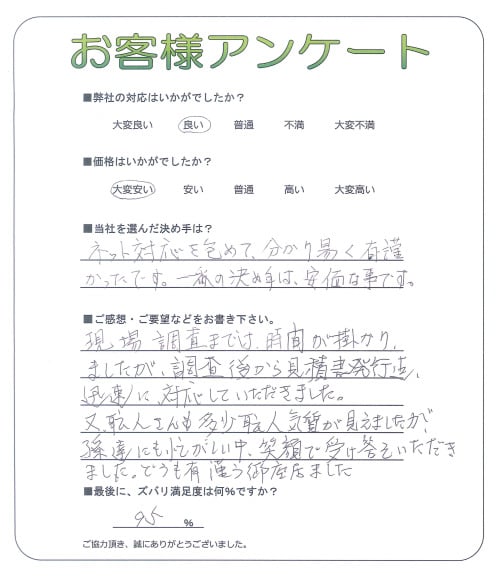 お客様アンケート
■弊社の対応はいかがでしたか？
大変良い 良い 普通 不満 大変不満
■価格はいかがでしたか？
大変安い 安い 普通 高い 大変高い
■当社を選んだ決め手は？
ネット対応を包めて、分かり易く有謹
かったです。一番の決め手は、安価な事です。
■ご感想・ご要望などをお書き下さい。
現場調査までは、時間が掛かり、
ましたが、調査後から見積書発行迄、
迅速に、対応していただきました。
又、転人さんも多少転人気質が見えましたが、
孫達にも忙がしい中、笑顔で受け答えいただき
ました。どうも有謹う御座居ました
■最後に、ズバリ満足度は何％ですか？
95 ％
ご協力頂き、誠にありがとうございました。